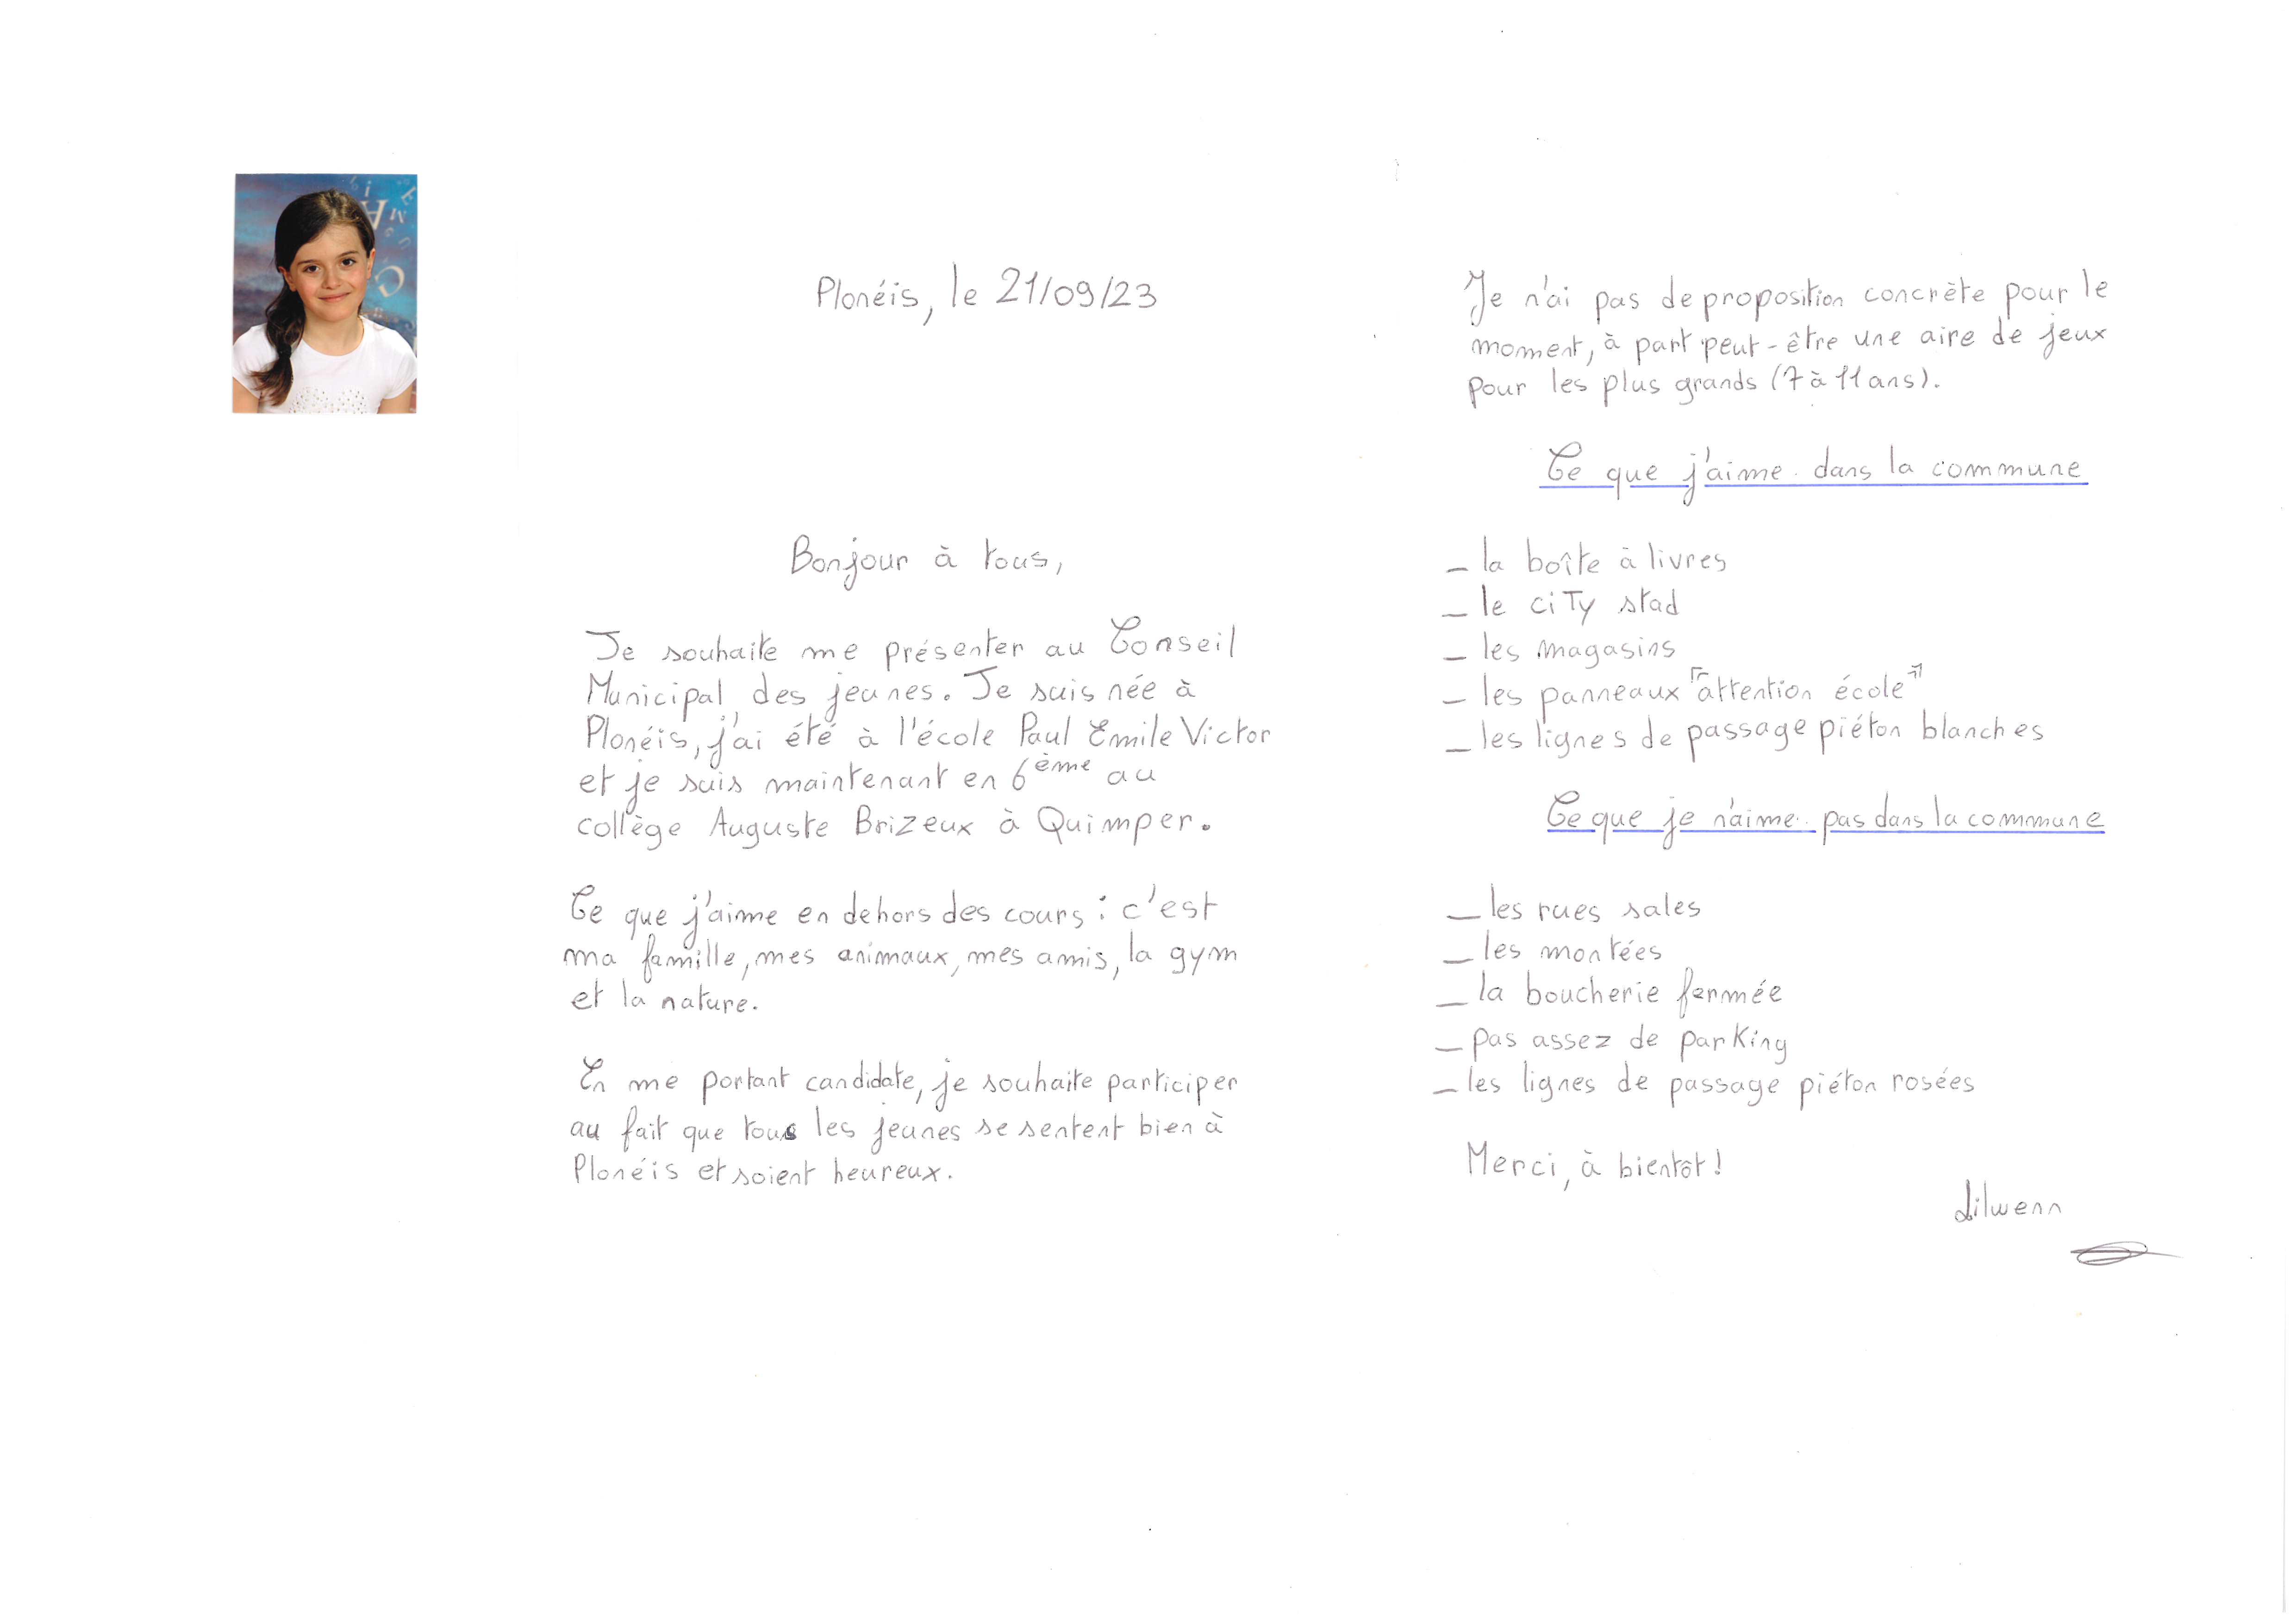 Plonéis, le 21/09/23
Bonjour à tous,
Je souhaite me présenter au Conseil
Municipal des jeunes. Je suis née à
Plonéis, j'ai été à l'école Paul Emile Victor
et je suis maintenant en 6ème au
collège Auguste Brizeux à Quimper.
Ce que j'aime en dehors des cours : c'est
ma famille, mes animaux, mes amis, la gym
et la nature.
En me portant candidate, je souhaite participer
au fait que tous les jeunes se sentent bien à
Plonéis et soient heureux.
Je n'ai pas de proposition concrète pour le
moment, à part peut-être une aire de jeux
pour les plus grands (7 à 11 ans).
Ce que j'aime dans la commune
_ la boîte à livres
_ le ciTy stad
_ les magasins
_ les panneaux "attention école"
_ les lignes de passage piéton blanches
Ce que je n'aime pas dans la commune
_ les rues sales
_ les montées
_ la boucherie fermée
_ pas assez de parking
_ les lignes de passage piéton rosées
Merci, à bientôt !
Lilwenn